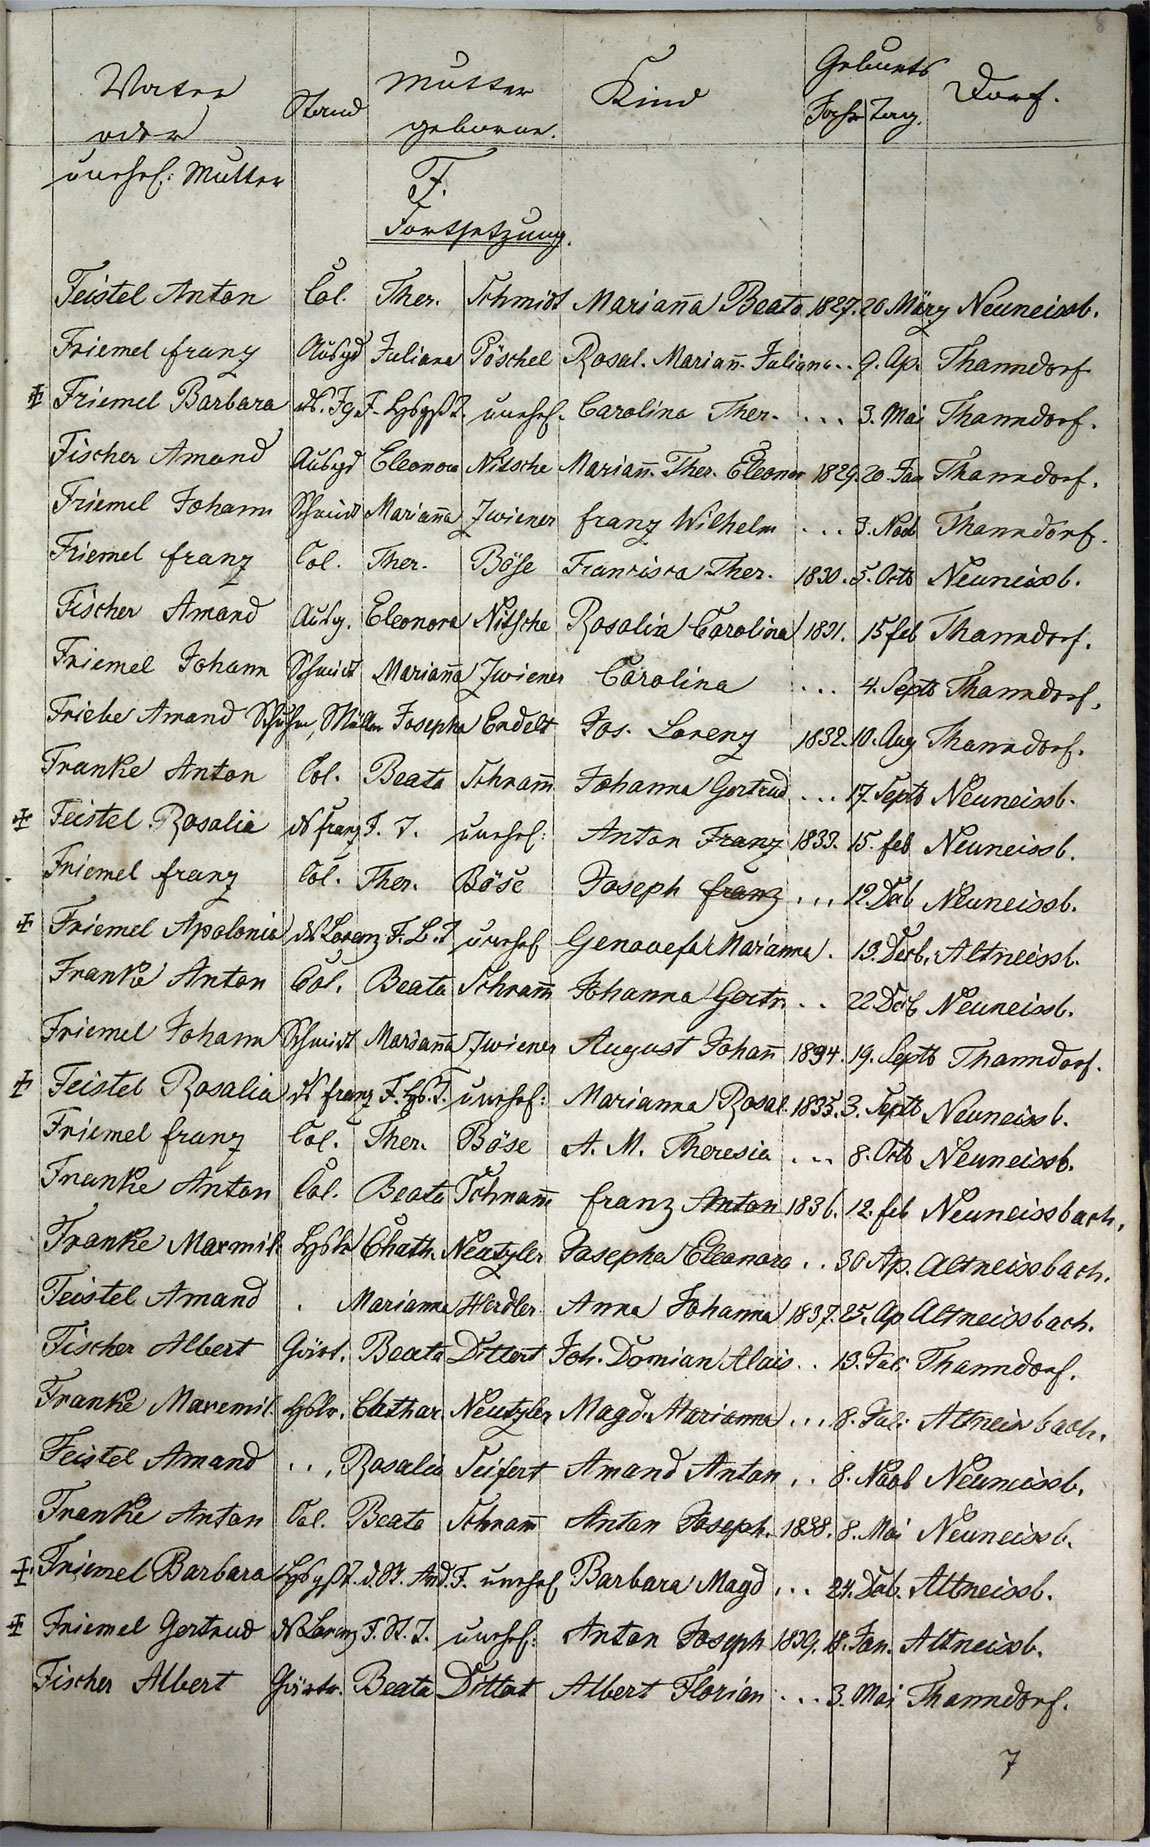 8
Vater oder unehel: Mutter Stand Mutter geborne. Kind Geburts Jahr Tag. Dorf.
F.
Fortsetzung.
Feistel Anton Col. Ther. Schmidt Mariaña Beata 1827. 20 März Neuneissb.
Friemel Franz Ausgd Juliana Pöschel Rosal. Mariañ. Juliana .. 9. Ap. Thanndorf
Friemel Barbara unehel. Carolina Ther. ... 3. Mai Thanndorf.
Fischer Amand Ausgd Eleonora Nitsche Mariañ. Ther. Eleonor 1829. 20. Jan Thanndorf.
Friemel Johann Schmidt Mariaña Zwiener Franz Wilhelm ... 3. Nov Thanndorf.
Friemel Franz Col. Ther. Böse Francisca Ther. 1830. 5. Octb Neuneissb.
Fischer Amand Ausg. Eleonora Nitsche Rosalia Carolina 1831. 15 feb Thanndorf.
Friemel Johann Schmidt Mariaña Zwiener Carolina ... 4. Septb Thanndorf.
Friebe Amand Josepha Erdelt Jos. Lorenz 1832. 10. Aug Thanndorf.
Franke Anton Col. Beata Schram̄ Johanna Gertrud ... 17. Septb Neuneissb.
Feistel Rosalia d Franz F. T. unehel: Anton Franz 1833. 15. feb Neuneissb.
Friemel Franz Col. Ther. Böse Joseph Franz ... 12 Dcb Neuneissb.
Friemel Apolonia d Lorenz F. L. T unehel Genovefa Marianna . 13. Decb. Altneissb.
Franke Anton Col. Beata Schram̄ Johanna Gertr. .. 22 Dcb Neuneissb.
Friemel Johann Schmidt Mariaña Zwiener August Johañ 1834. 19. Septb Thanndorf.
Feistel Rosalia d Franz F. T. unehel: Marianna Rosal. 1835. 3. Septb Neuneissb.
Friemel Franz Col. Ther. Böse A. M. Theresia ... 8. Octb Neuneissb.
Franke Anton Col. Beata Schram̄ Franz Anton 1836. 12. feb Neuneissbach.
Franke Maxmil Hslr Chath. Neutzler Josepha Eleonora .. 30 Ap. Altneissbach.
Feistel Amand . Marianna Herdler Anna Johanna 1837. 25. Ap Altneissbach.
Fischer Albert Gärt. Beata Dittert Joh. Domian Alois .. 13. Juli Thanndorf.
Franke Maxemil. Hslr. Chathar. Neutzler Magd. Marianna ... 8. Juli Altneissbach.
Feistel Amand ... Rosalia Seifert Amand Anton .. 8. Novb Neuneissb.
Franke Anton Col. Beata Schram̄ Anton Joseph. 1838. 8. Mai Neuneissb.
Friemel Barbara unehel Barbara Magd ... 24. Dcb. Altneissb.
Friemel Gertrud d Lorenz F. St. T. unehel: Anton Joseph 1839. 18. Jan. Altneissb.
Fischer Albert Gärtr. Beata Dittert Albert Florian ... 3. Mai Thanndorf.
7